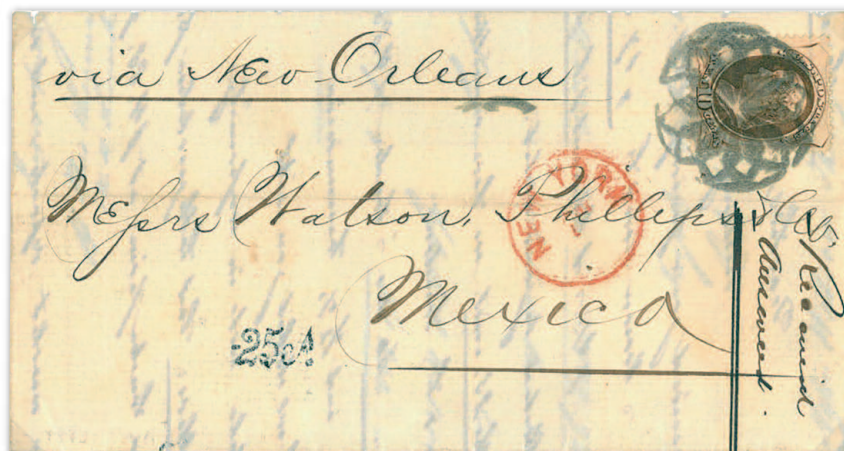 via New Orleans
Messrs Watson, Phillips & Co.
Mexico
NEW YORK
25 cts
Received
Answered.